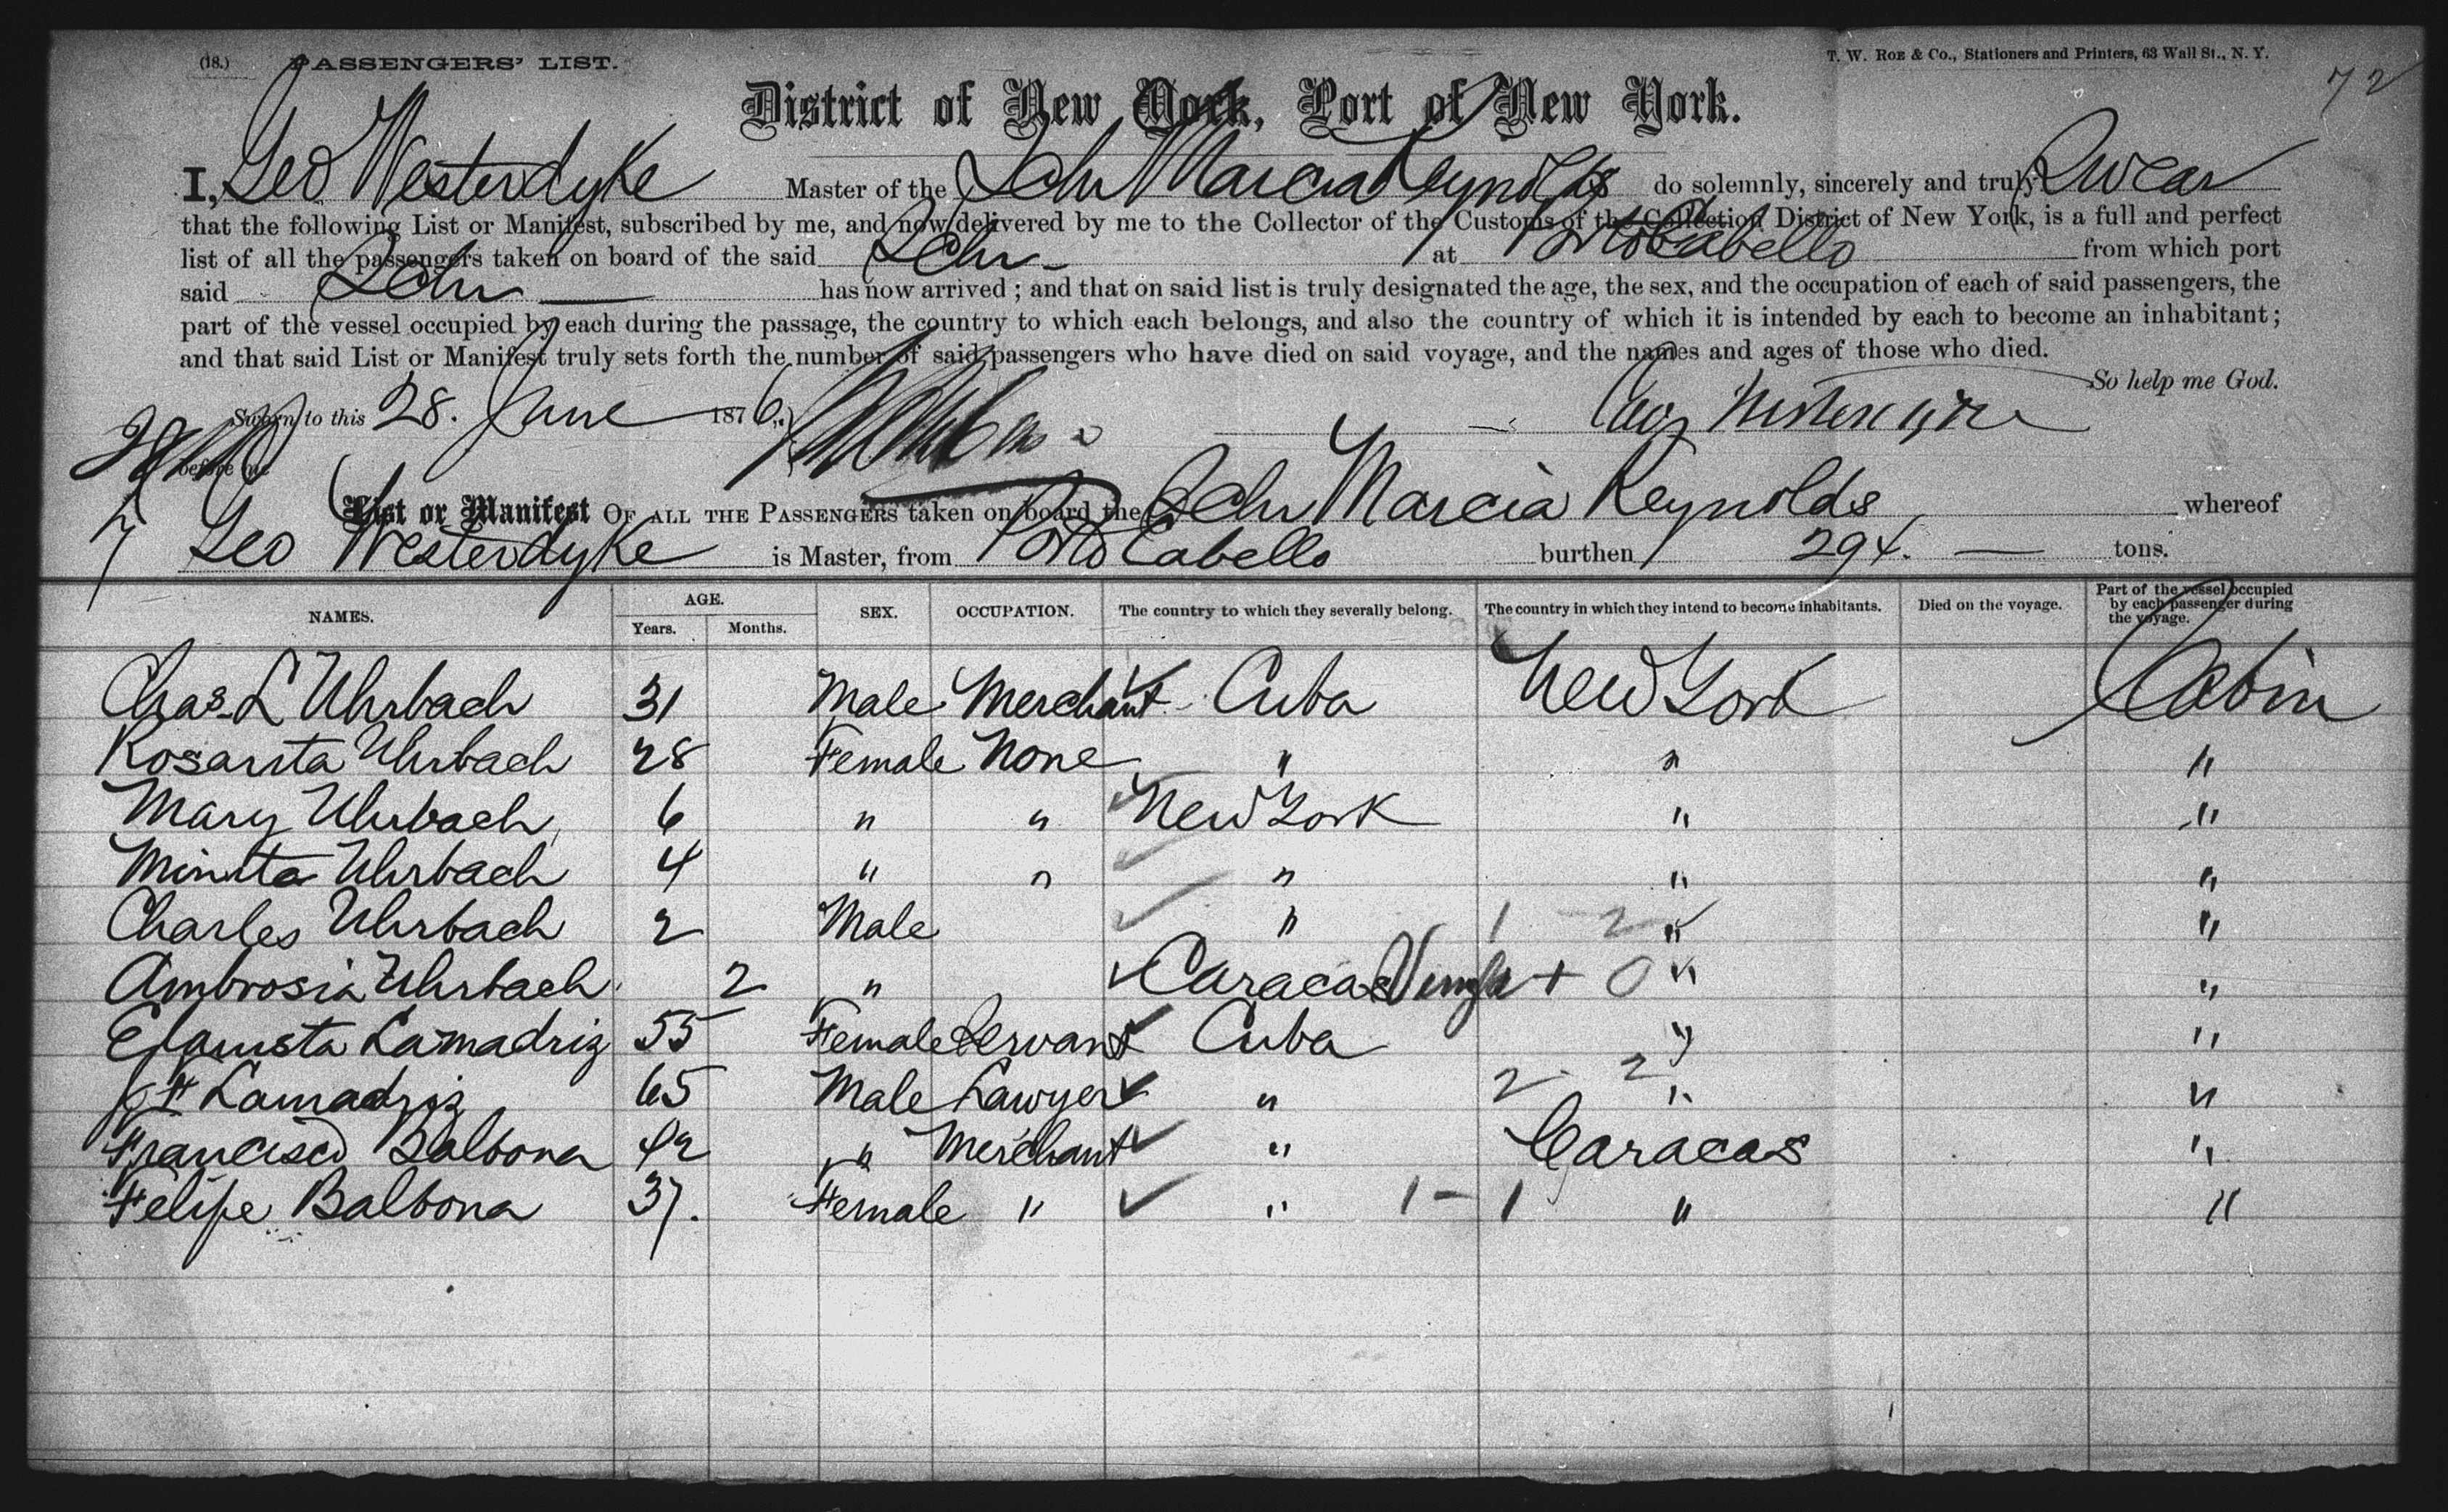 (18.) PASSENGERS' LIST. T. W. Roe & Co., Stationers and Printers, 63 Wall St., N. Y.
72
District of New York, Port of New York.
I, Geo Westerdyke Master of the Schr Marcia Reynolds do solemnly, sincerely and truly Swear
that the following List or Manifest, subscribed by me, and now delivered by me to the Collector of the Customs of the Collection District of New York, is a full and perfect
list of all the passengers taken on board of the said Schr at Porto Cabello from which port
said Schr has now arrived; and that on said list is truly designated the age, the sex, and the occupation of each of said passengers, the
part of the vessel occupied by each during the passage, the country to which each belongs, and also the country of which it is intended by each to become an inhabitant;
and that said List or Manifest truly sets forth the number of said passengers who have died on said voyage, and the names and ages of those who died.
So help me God.
Sworn to this 28. June 1876.
before me
List or Manifest OF ALL THE PASSENGERS taken on board the Schr Marcia Reynolds whereof
7 Geo Westerdyke is Master, from Porto Cabello burthen 294. tons.
NAMES. AGE. Years. Months. SEX. OCCUPATION. The country to which they severally belong. The country in which they intend to become inhabitants. Died on the voyage. Part of the vessel occupied by each passenger during the voyage.
Chas. L Uhrbach 31 Male Merchant Cuba New York Cabin
Rosarita Uhrbach 28 Female None " " "
Mary Uhrbach 6 " " New York " "
Minita Uhrbach 4 " " " " "
Charles Uhrbach 2 Male " 1 2 " "
Ambrosia Uhrbach 2 " Caracas + 0 " "
Lamadriz 55 Female Servant Cuba " "
Lamadriz 65 Male Lawyer " 2 - 2 " "
Francisco Balbona 42 " Merchant " Caracas "
Felipe Balbona 37. Female " " 1 - 1 " "